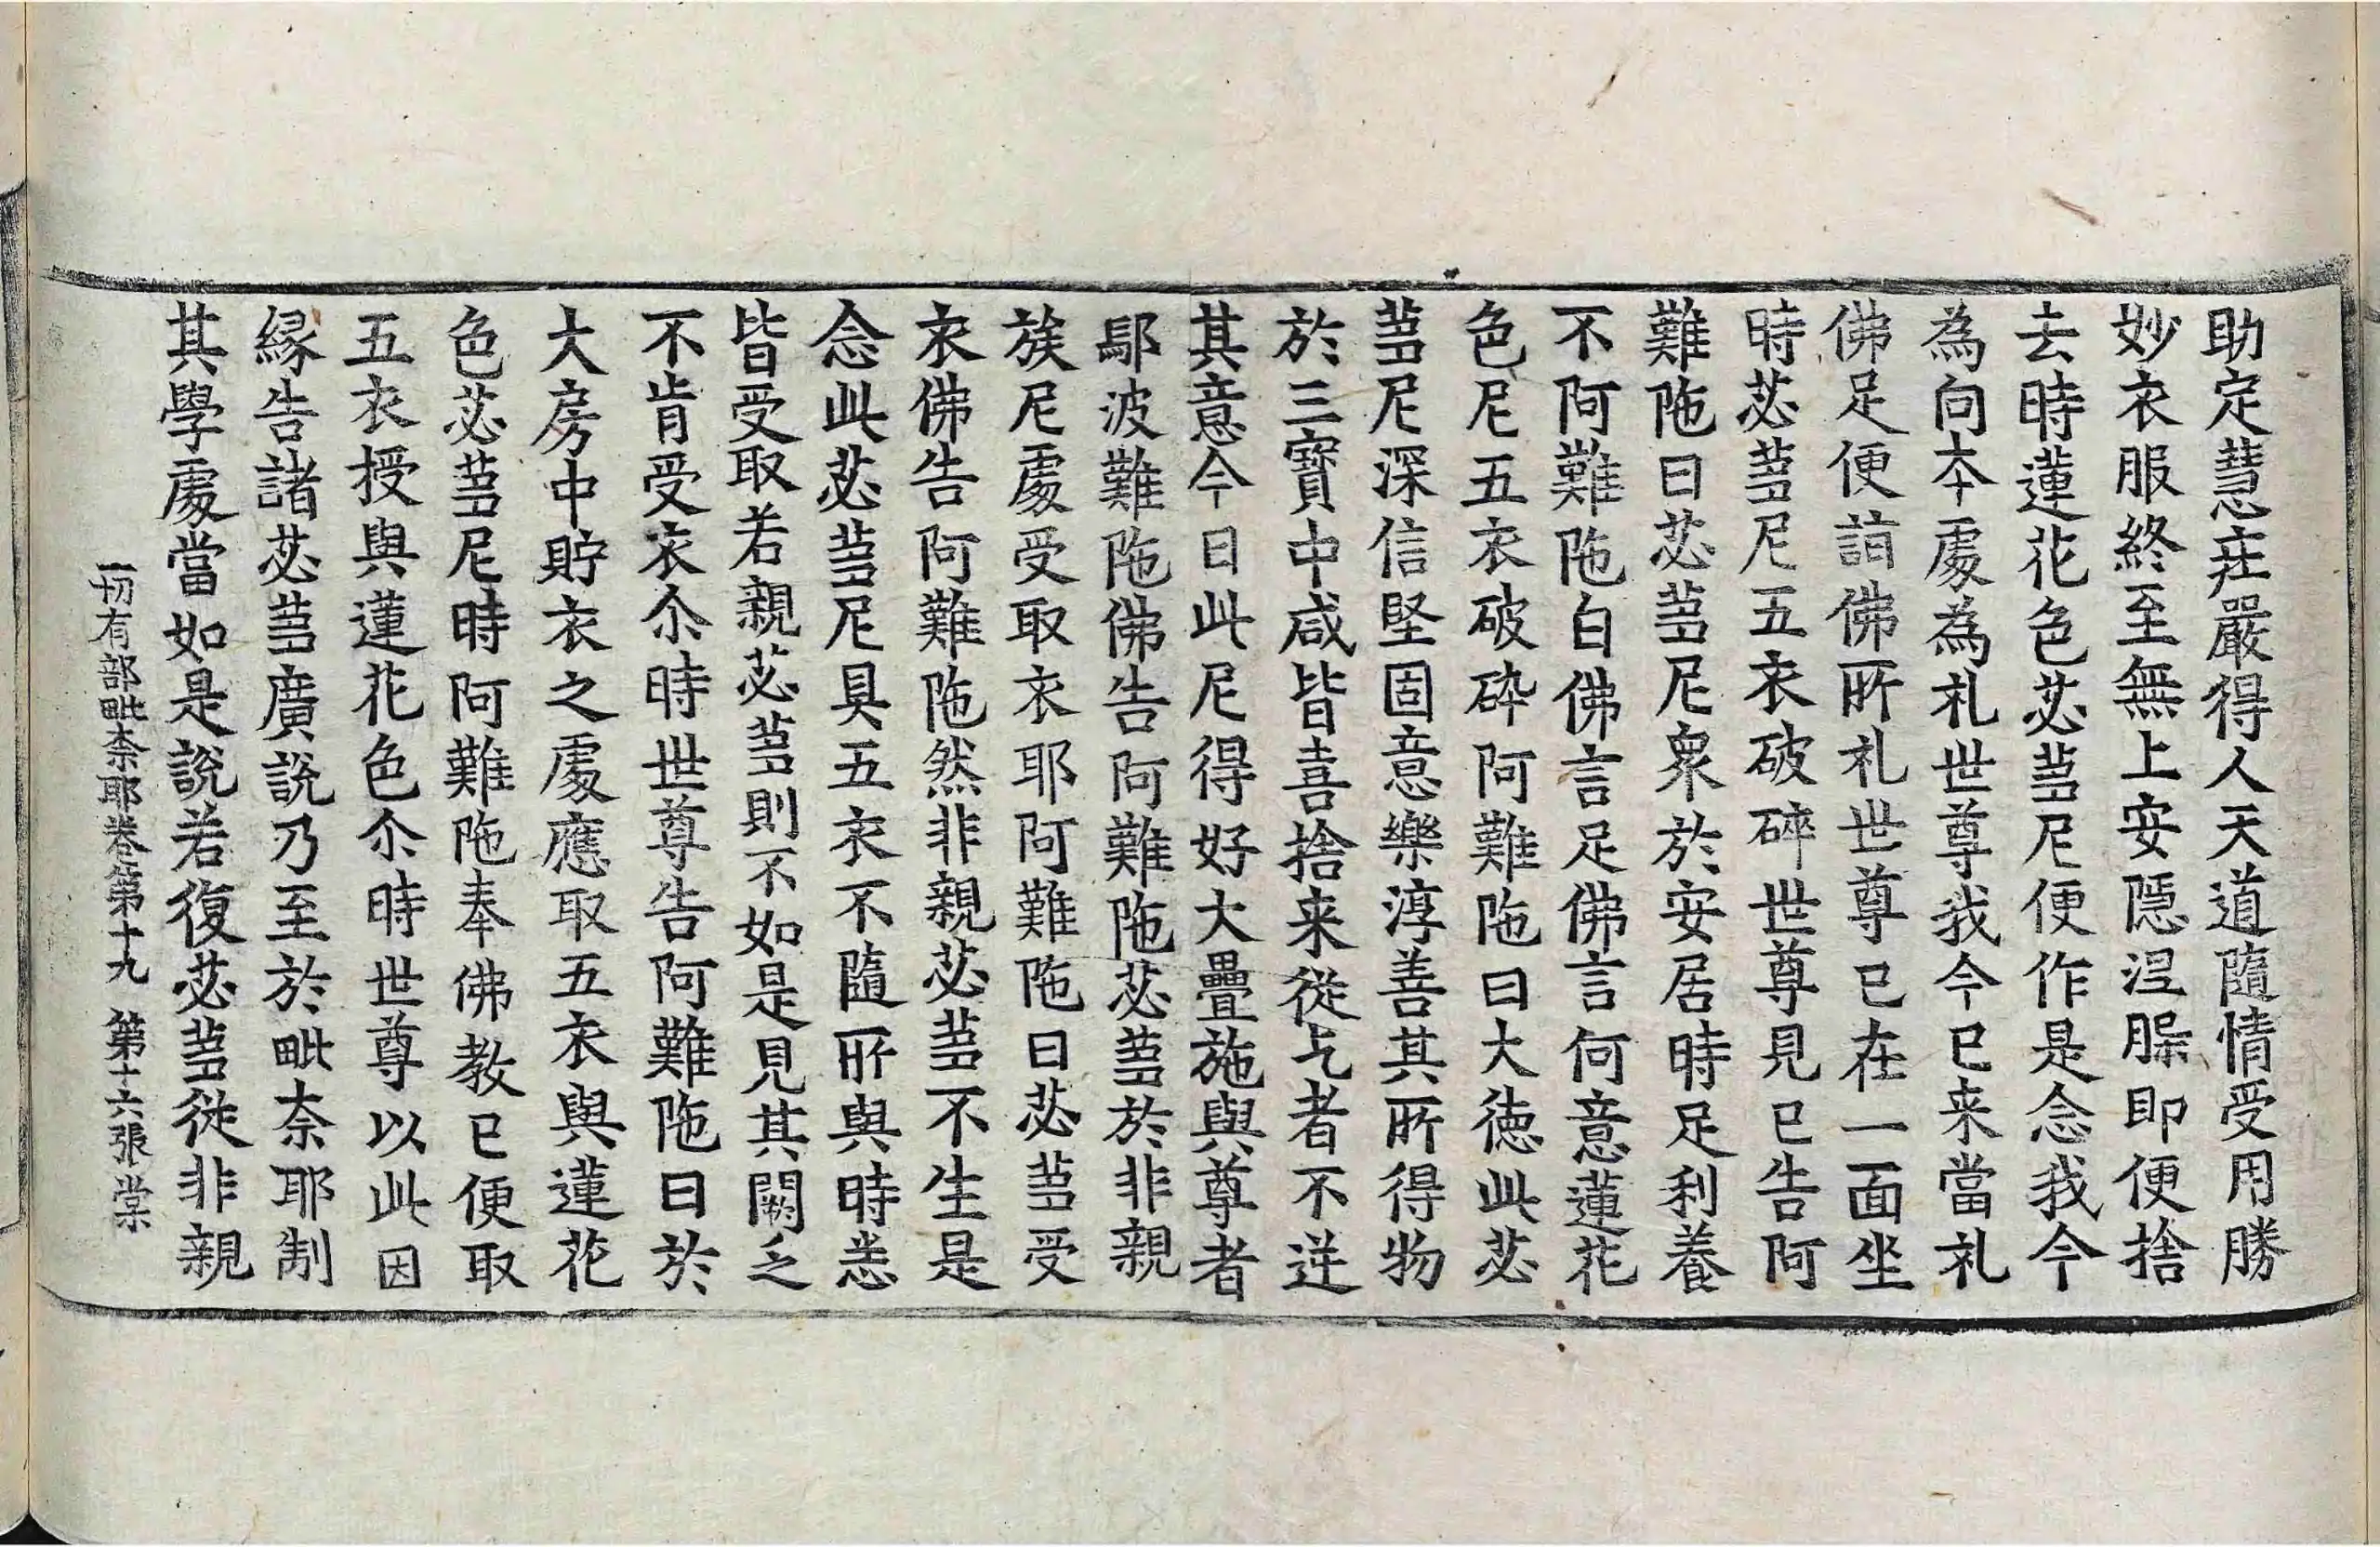 助定慧庄嚴得人天道隨情受用勝
妙衣服終至無上安隱涅槃即便捨
去時蓮花色苾蒭尼便作是念我今
為向本處為礼世尊我今已来當礼
佛足便詣佛所礼世尊已在一面坐
時苾蒭尼五衣破碎世尊見已告阿
難陁曰苾蒭尼衆於安居時足利養
不阿難陁白佛言足佛言何意蓮花
色尼五衣破碎阿難陁曰大徳此苾
蒭尼深信堅固意樂淳善其所得物
於三寳中咸皆喜捨来從乞者不逆
其意今日此尼得好大疊施與尊者
鄔波難陁佛告阿難陁苾蒭於非親
族尼處受取衣耶阿難陁曰苾蒭受
衣佛告阿難陁然非親苾蒭不生是
念此苾蒭尼具五衣不隨所與時悉
皆受取若親苾蒭則不如是見其闕乏
不肯受衣尒時世尊告阿難陁曰於
大房中貯衣之處應取五衣與蓮花
色苾蒭尼時阿難陁奉佛教已便取
五衣授與蓮花色尒時世尊以此因
緣告諸苾蒭廣說乃至於毗奈耶制
其學處當如是說若復苾蒭從非親
一切有部毗奈耶卷第十九 第十六張 棠